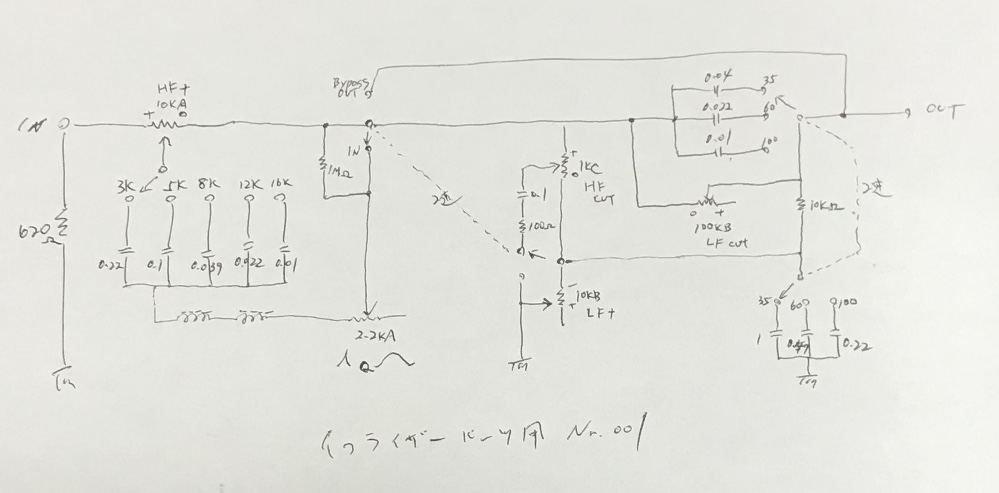 Bypass
OUT
IN
HF+
10KA
+
IN
1MΩ
620Ω
3K 5K 8K 12K 16K
0.22 0.1 0.039 0.022 0.01
2.2KA
Q
2連
0.1
100Ω
+
1KC
HF
CUT
10KB
LF+
0.04 35
0.022 60
0.01 100
OUT
+
100KB
LF cut
10KΩ
2連
35 60 100
1 0.22
イコライザー ドーツ用 Nr. 001